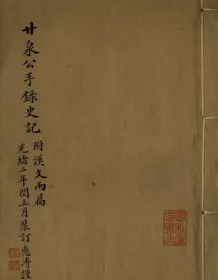 甘泉公手錄史記
附漢文兩篇
光緒二年閏五月裝訂應孝謹